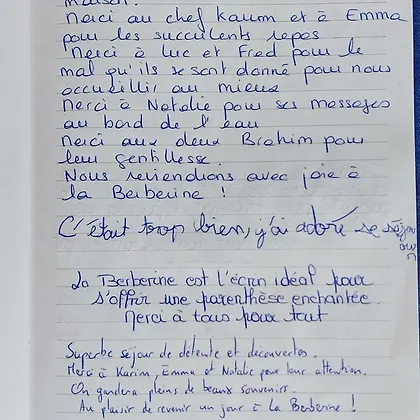 maison.
Merci au chef Karim et à Emma
pour les succulents repas
Merci à Luc et Fred pour le
mal qu'ils se sont donné pour nous
accueillir au mieux
Merci à Natalie pour ses messages
au bord de l'eau
Merci aux deux Brahim pour
leur gentillesse.
Nous reviendrons avec joie à
la Berberine !
C'était trop bien, j'ai adoré se séjour
La Berberine est l'écrin idéal pour
s'offrir une parenthèse enchantée.
Merci à tous pour tout
Superbe séjour de détente et découvertes.
Merci à Karim, Emma et Natalie pour leur attention.
On gardera pleins de beaux souvenirs.
Au plaisir de revenir un jour à La Berberine !